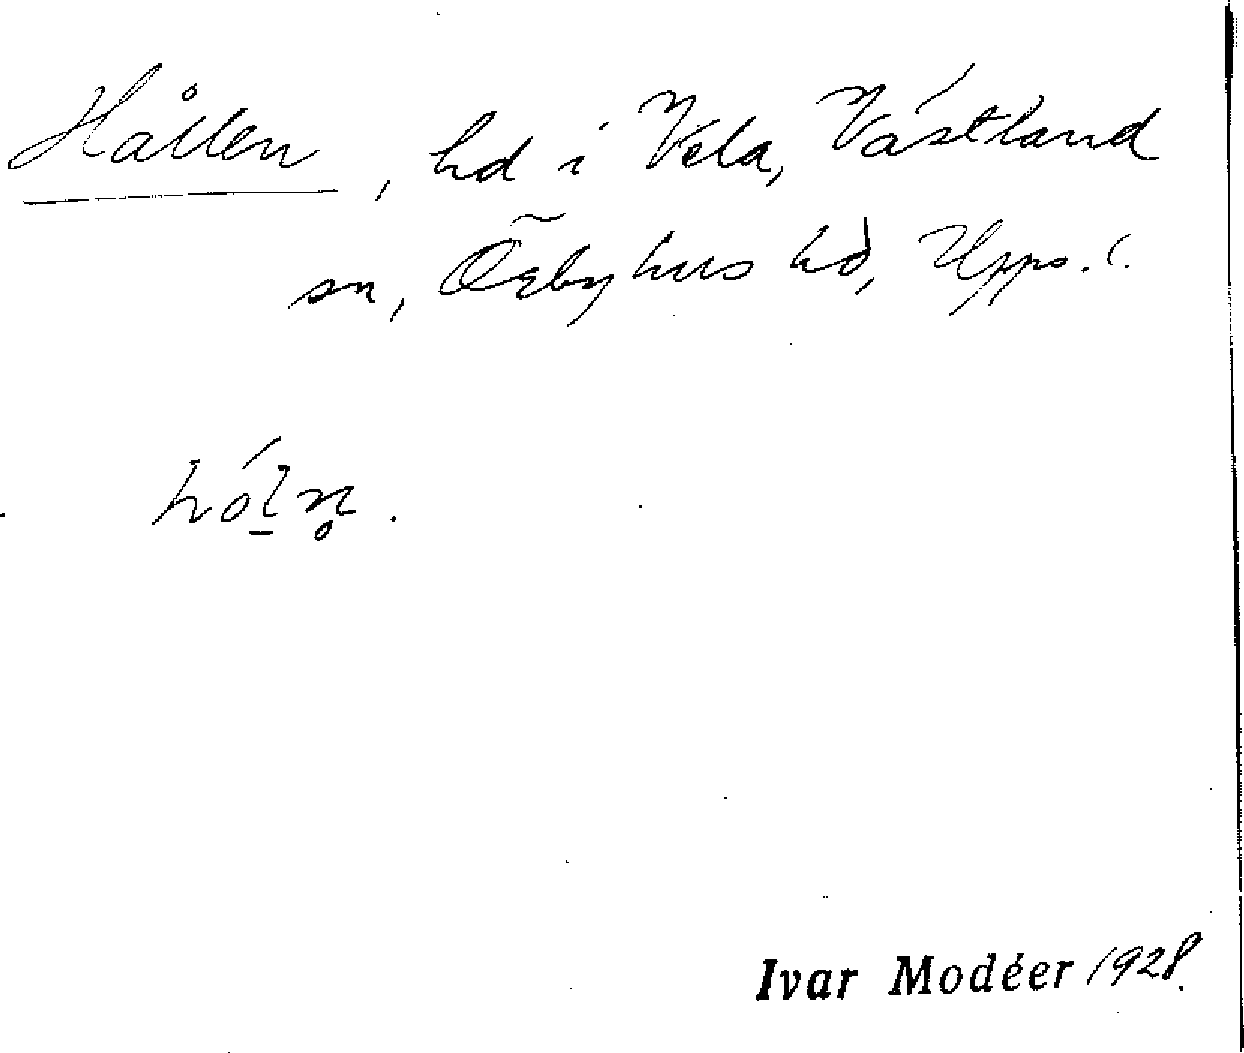 Hållen, hd i Vela, Västland
sn, Örbyhus hd, Upps. l.
hól̲n̥.
Ivar Modéer 1928.